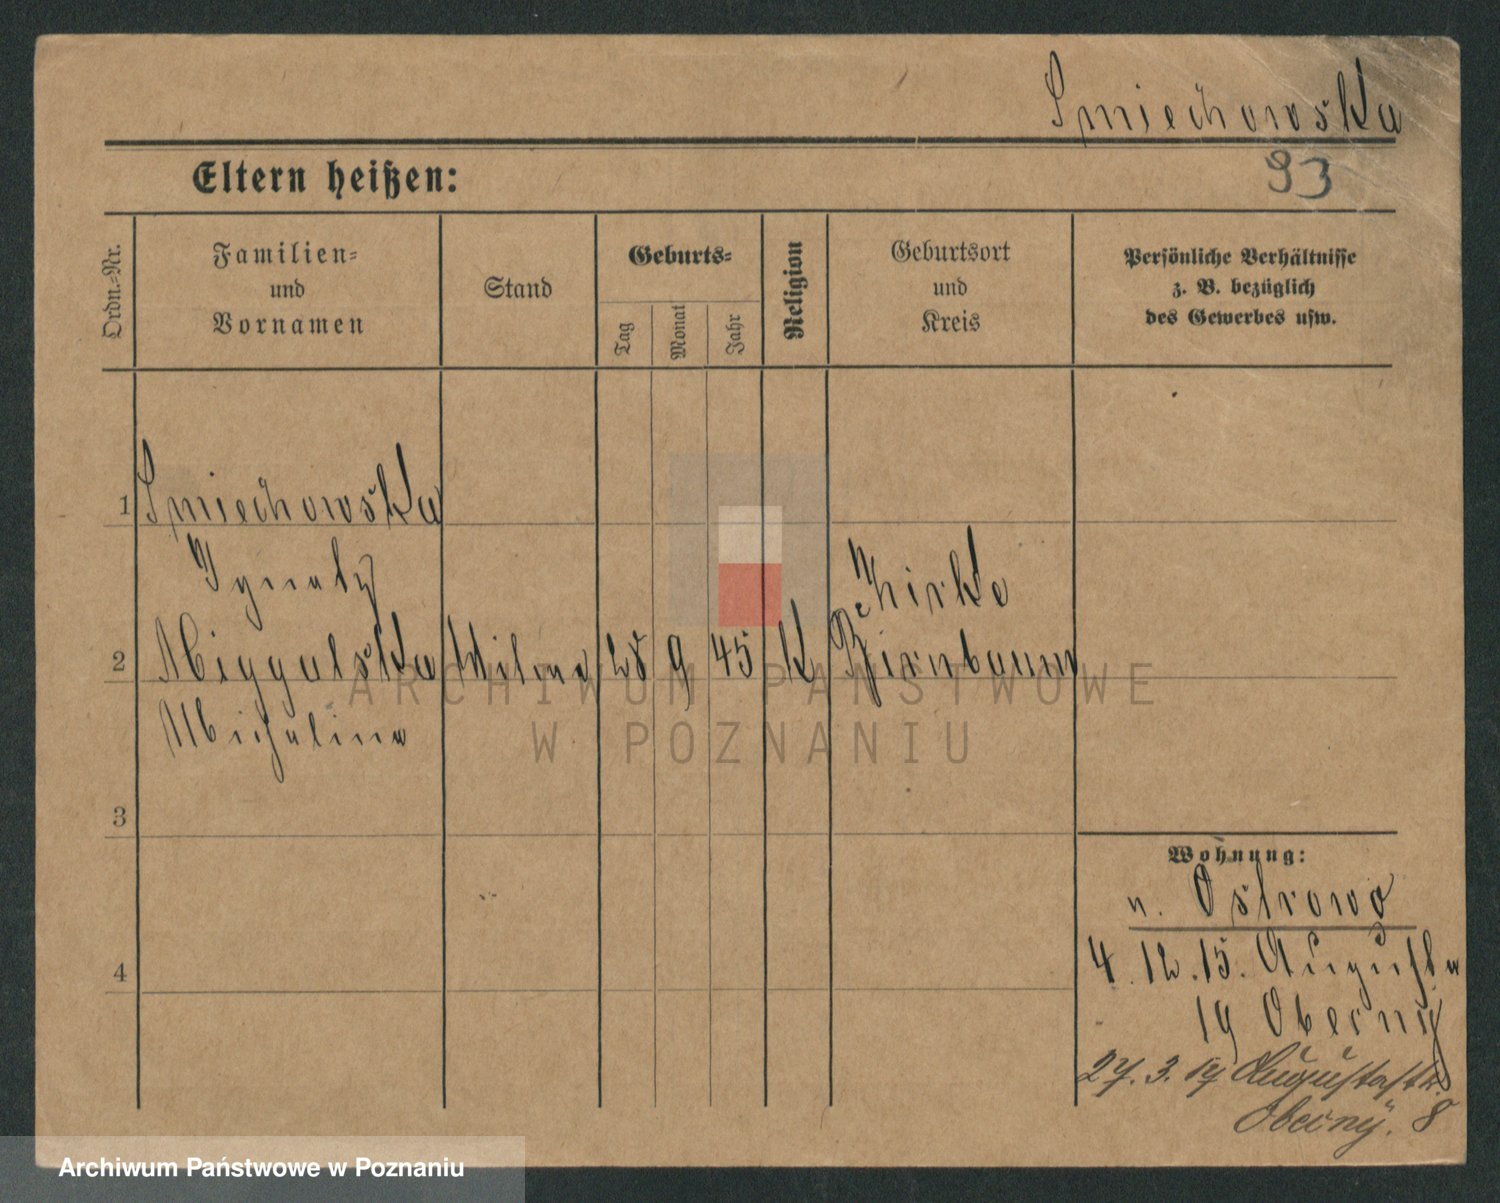 Smiechowska
93
Eltern heißen:
Ordn.-Nr.
Familien- und Vornamen
Stand
Geburts-
Tag
Monat
Jahr
Religion
Geburtsort und Kreis
Persönliche Verhältnisse
z. B. bezüglich
des Gewerbes usw.
1 Smiechowska
Ignatz
2 Miggalska
28 9 45 K
Zirke
Birnbaum
Michalina
3
4
Wohnung:
n. Ostrowo
4.12.15. Augusta
19 Oberny
27.3.19 Augustastr.
Oberny. 8
ARCHIWUM PAŃSTWOWE
W POZNANIU
Archiwum Państwowe w Poznaniu